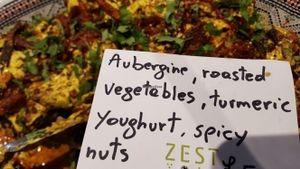 Aubergine, roasted
vegetables, turmeric
youghurt, spicy
nuts
ZEST